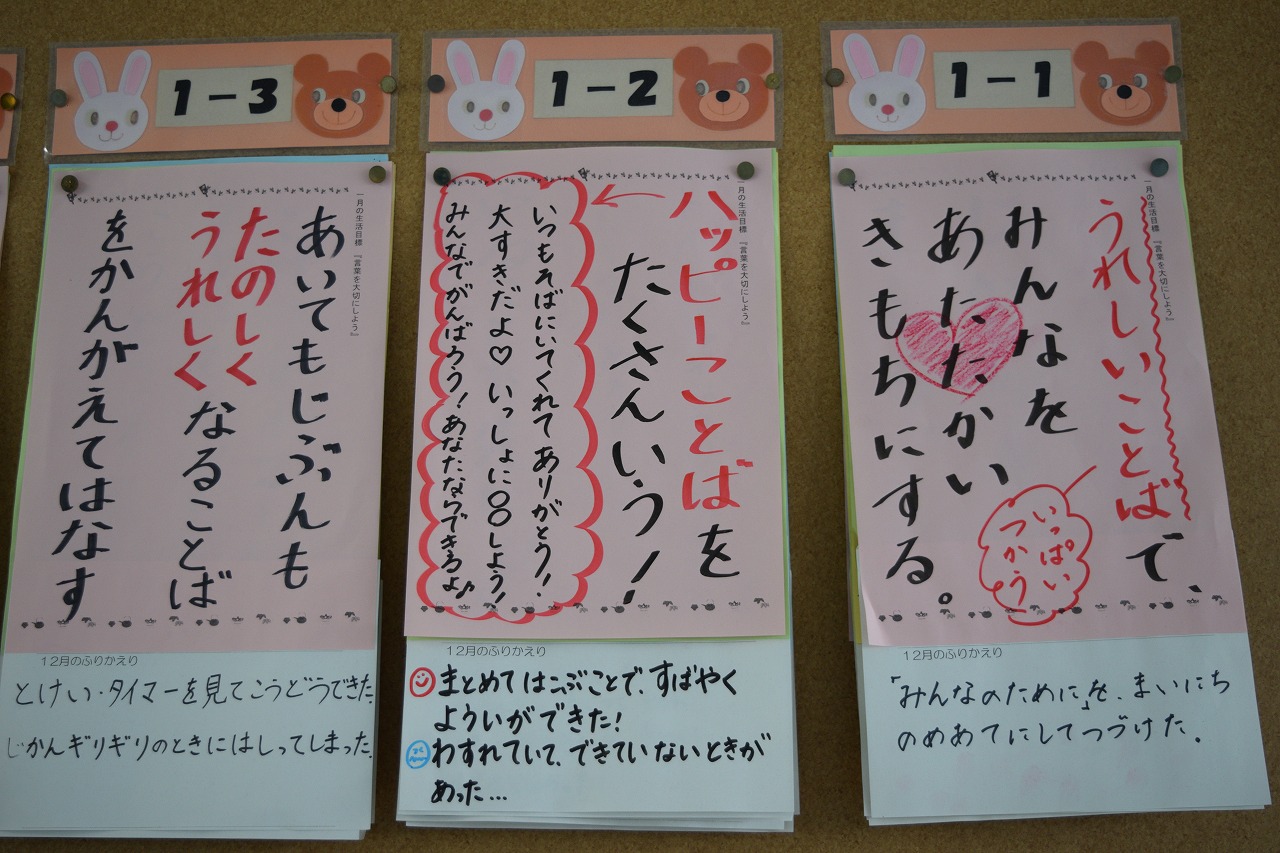 1-3
一月の生活目標 『言葉を大切にしよう』
あいてもじぶんも
たのしく
うれしくなることば
をかんがえてはなす
12月のふりかえり
とけい・タイマーを見てこうどうできた。
じかんギリギリのときにはしってしまった。
1-2
一月の生活目標 『言葉を大切にしよう』
ハッピーことばを
たくさんいう!
いつもそばにいてくれてありがとう!
大すきだよ♡いっしょに○○しよう!
みんなでがんばろう!あなたならできるよ♪
12月のふりかえり
まとめてはこぶことで、すばやく
よういができた!
わすれていて、できていないときが
あった...
1-1
一月の生活目標 『言葉を大切にしよう』
うれしいことばで、
いっぱい
つかう
みんなを
あたたかい
きもちにする。
12月のふりかえり
「みんなのために」を、まいにち
のめあてにしてつづけた。